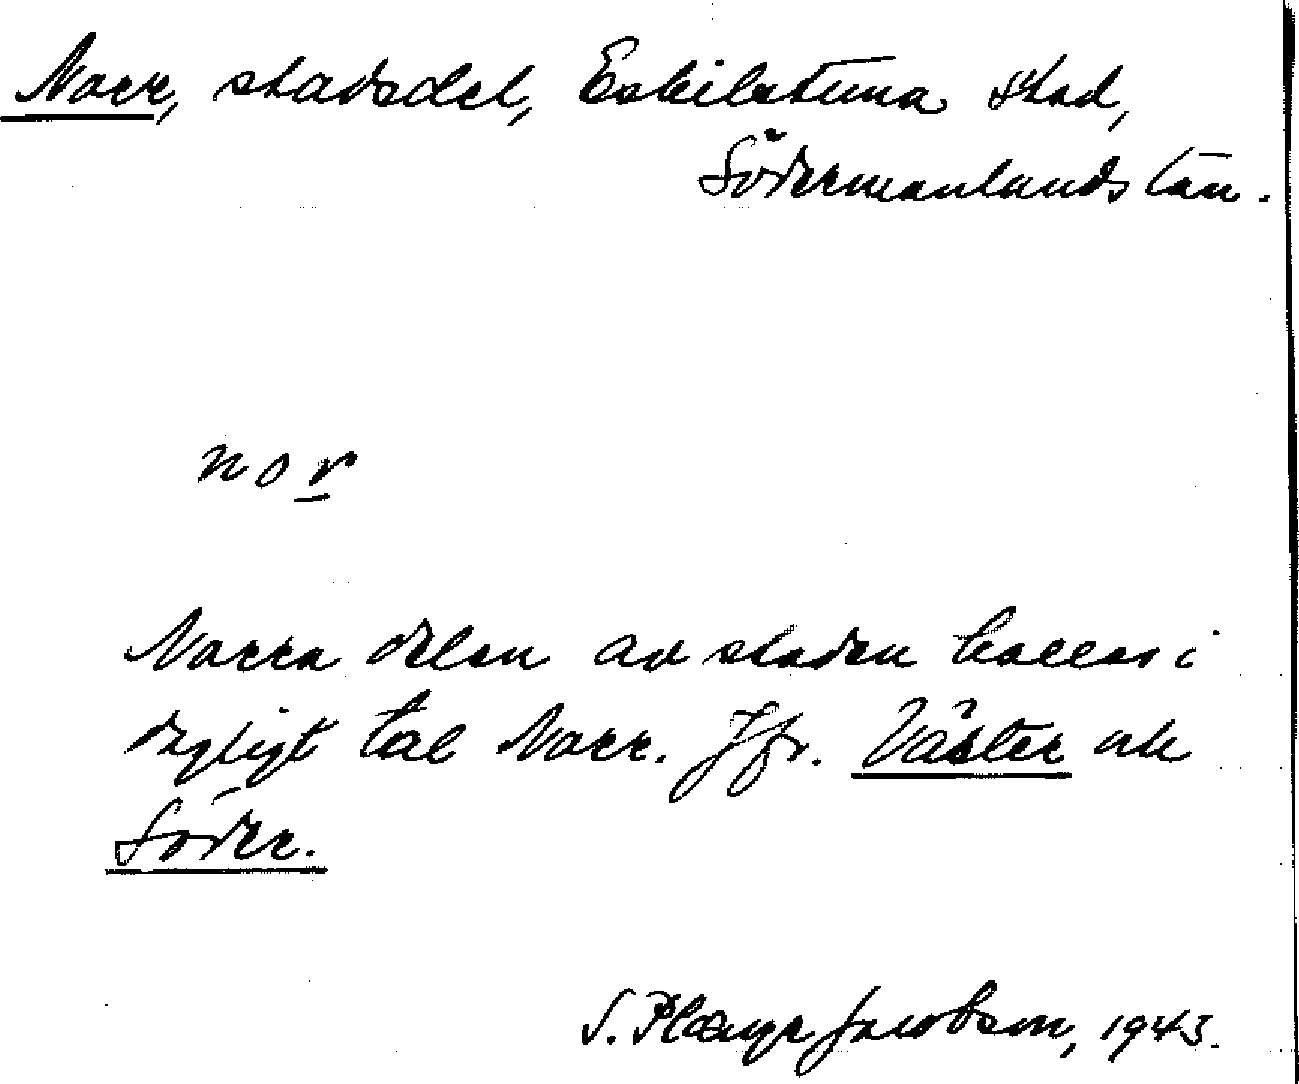 Norr, stadsdel, Eskilstuna stad,
Södermanlands län.
nor
Norra delen av staden kallas i
dagligt tal Norr. Jfr. Väster och
Söder.
S. Plænge Jacobson, 1943.